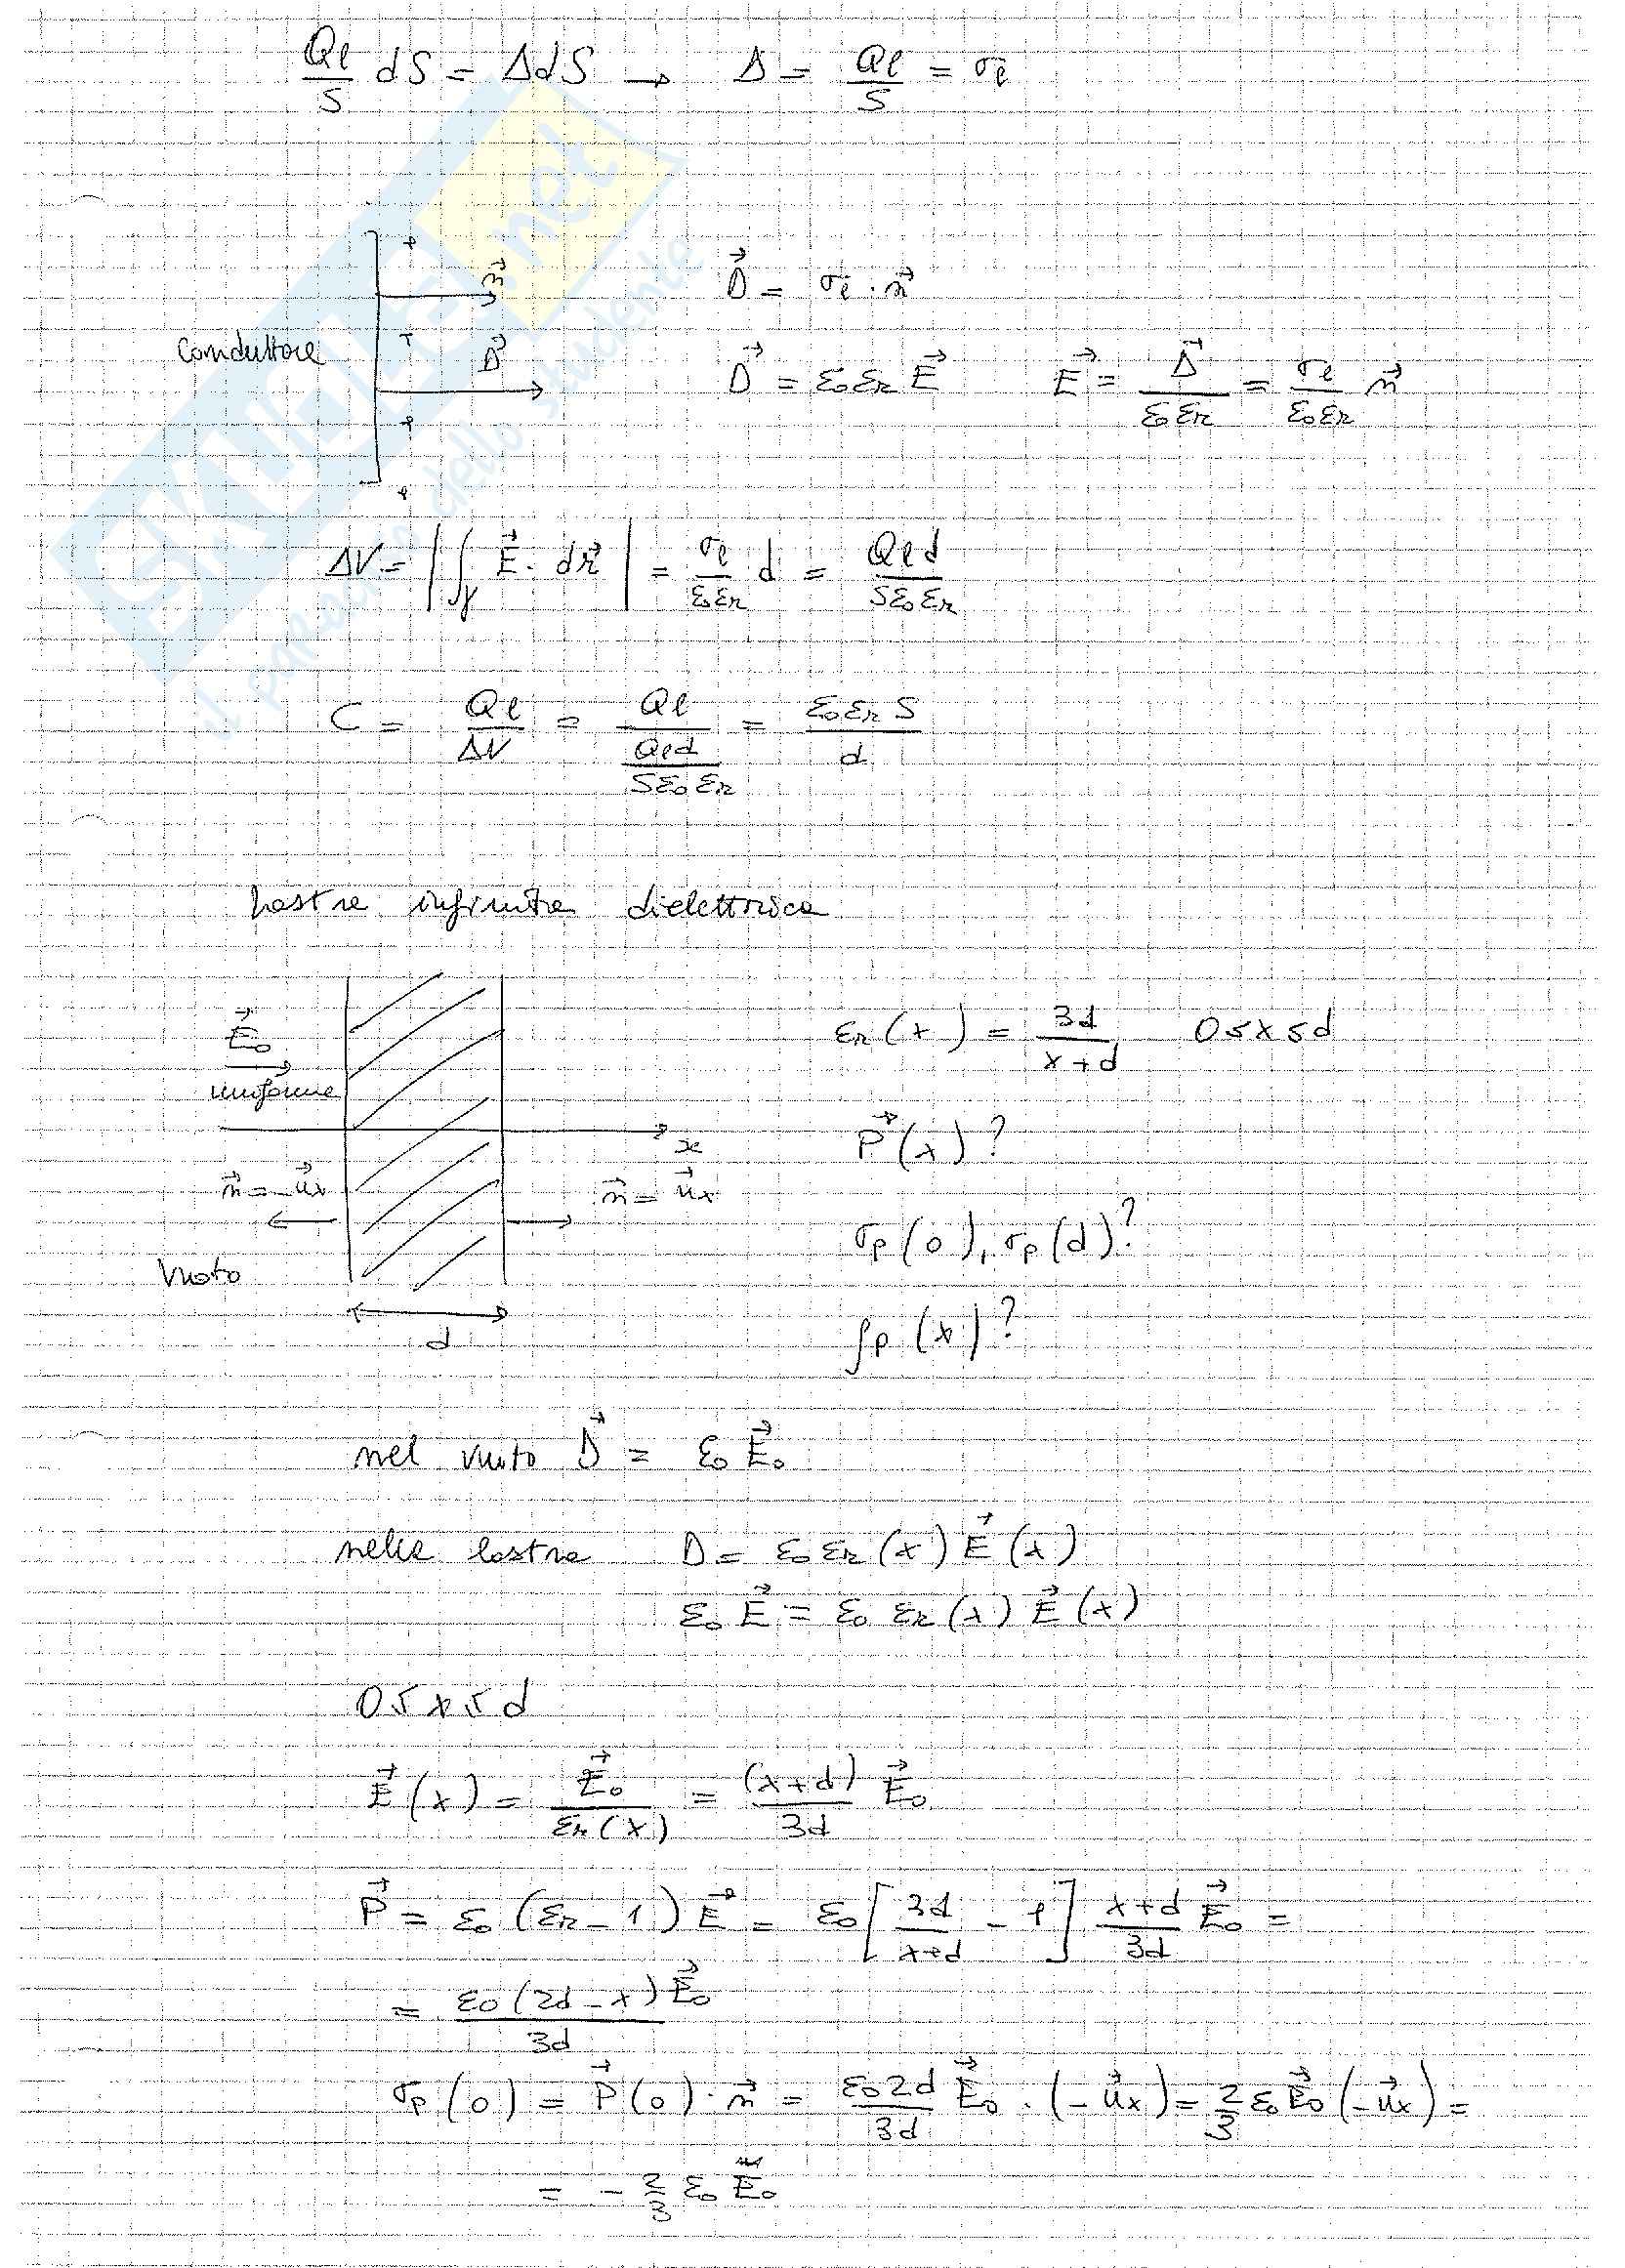 Ql/S dS = Δ dS → Δ = Ql/S = σl
Conduttore
+
+
+
+
n⃗
D⃗
D⃗ = σl · n⃗
D⃗ = ε0 εr E⃗    E⃗ = Δ⃗/(ε0 εr) = σl/(ε0 εr) n⃗
ΔV = | ∫γ E⃗ · dr⃗ | = σl/(ε0 εr) d = Ql d/(S ε0 εr)
C = Ql/ΔV = Ql/(Ql d/(S ε0 εr)) = ε0 εr S/d
Lastra infinita dielettrica
E⃗0
uniforme
x
n⃗ = -u⃗x
n⃗ = u⃗x
Vuoto
d
εr(x) = 3d/(x+d)    0≤x≤d
P⃗(x)?
σp(0), σp(d)?
ρp(x)?
nel vuoto D⃗ = ε0 E⃗0
nella lastra D = ε0 εr(x) E⃗(x)
ε0 E⃗ = ε0 εr(x) E⃗(x)
0≤x≤d
E⃗(x) = E⃗0/εr(x) = (x+d)/3d E⃗0
P⃗ = ε0 (εr - 1) E⃗ = ε0 [3d/(x+d) - 1] (x+d)/3d E⃗0 =
= ε0(2d-x)E⃗0/3d
σp(0) = P⃗(0) · n⃗ = ε0 2d/3d E⃗0 · (-u⃗x) = 2/3 ε0 E⃗0 (-u⃗x) =
= - 2/3 ε0 E0
SKUOLA.net
il paradiso dello studente